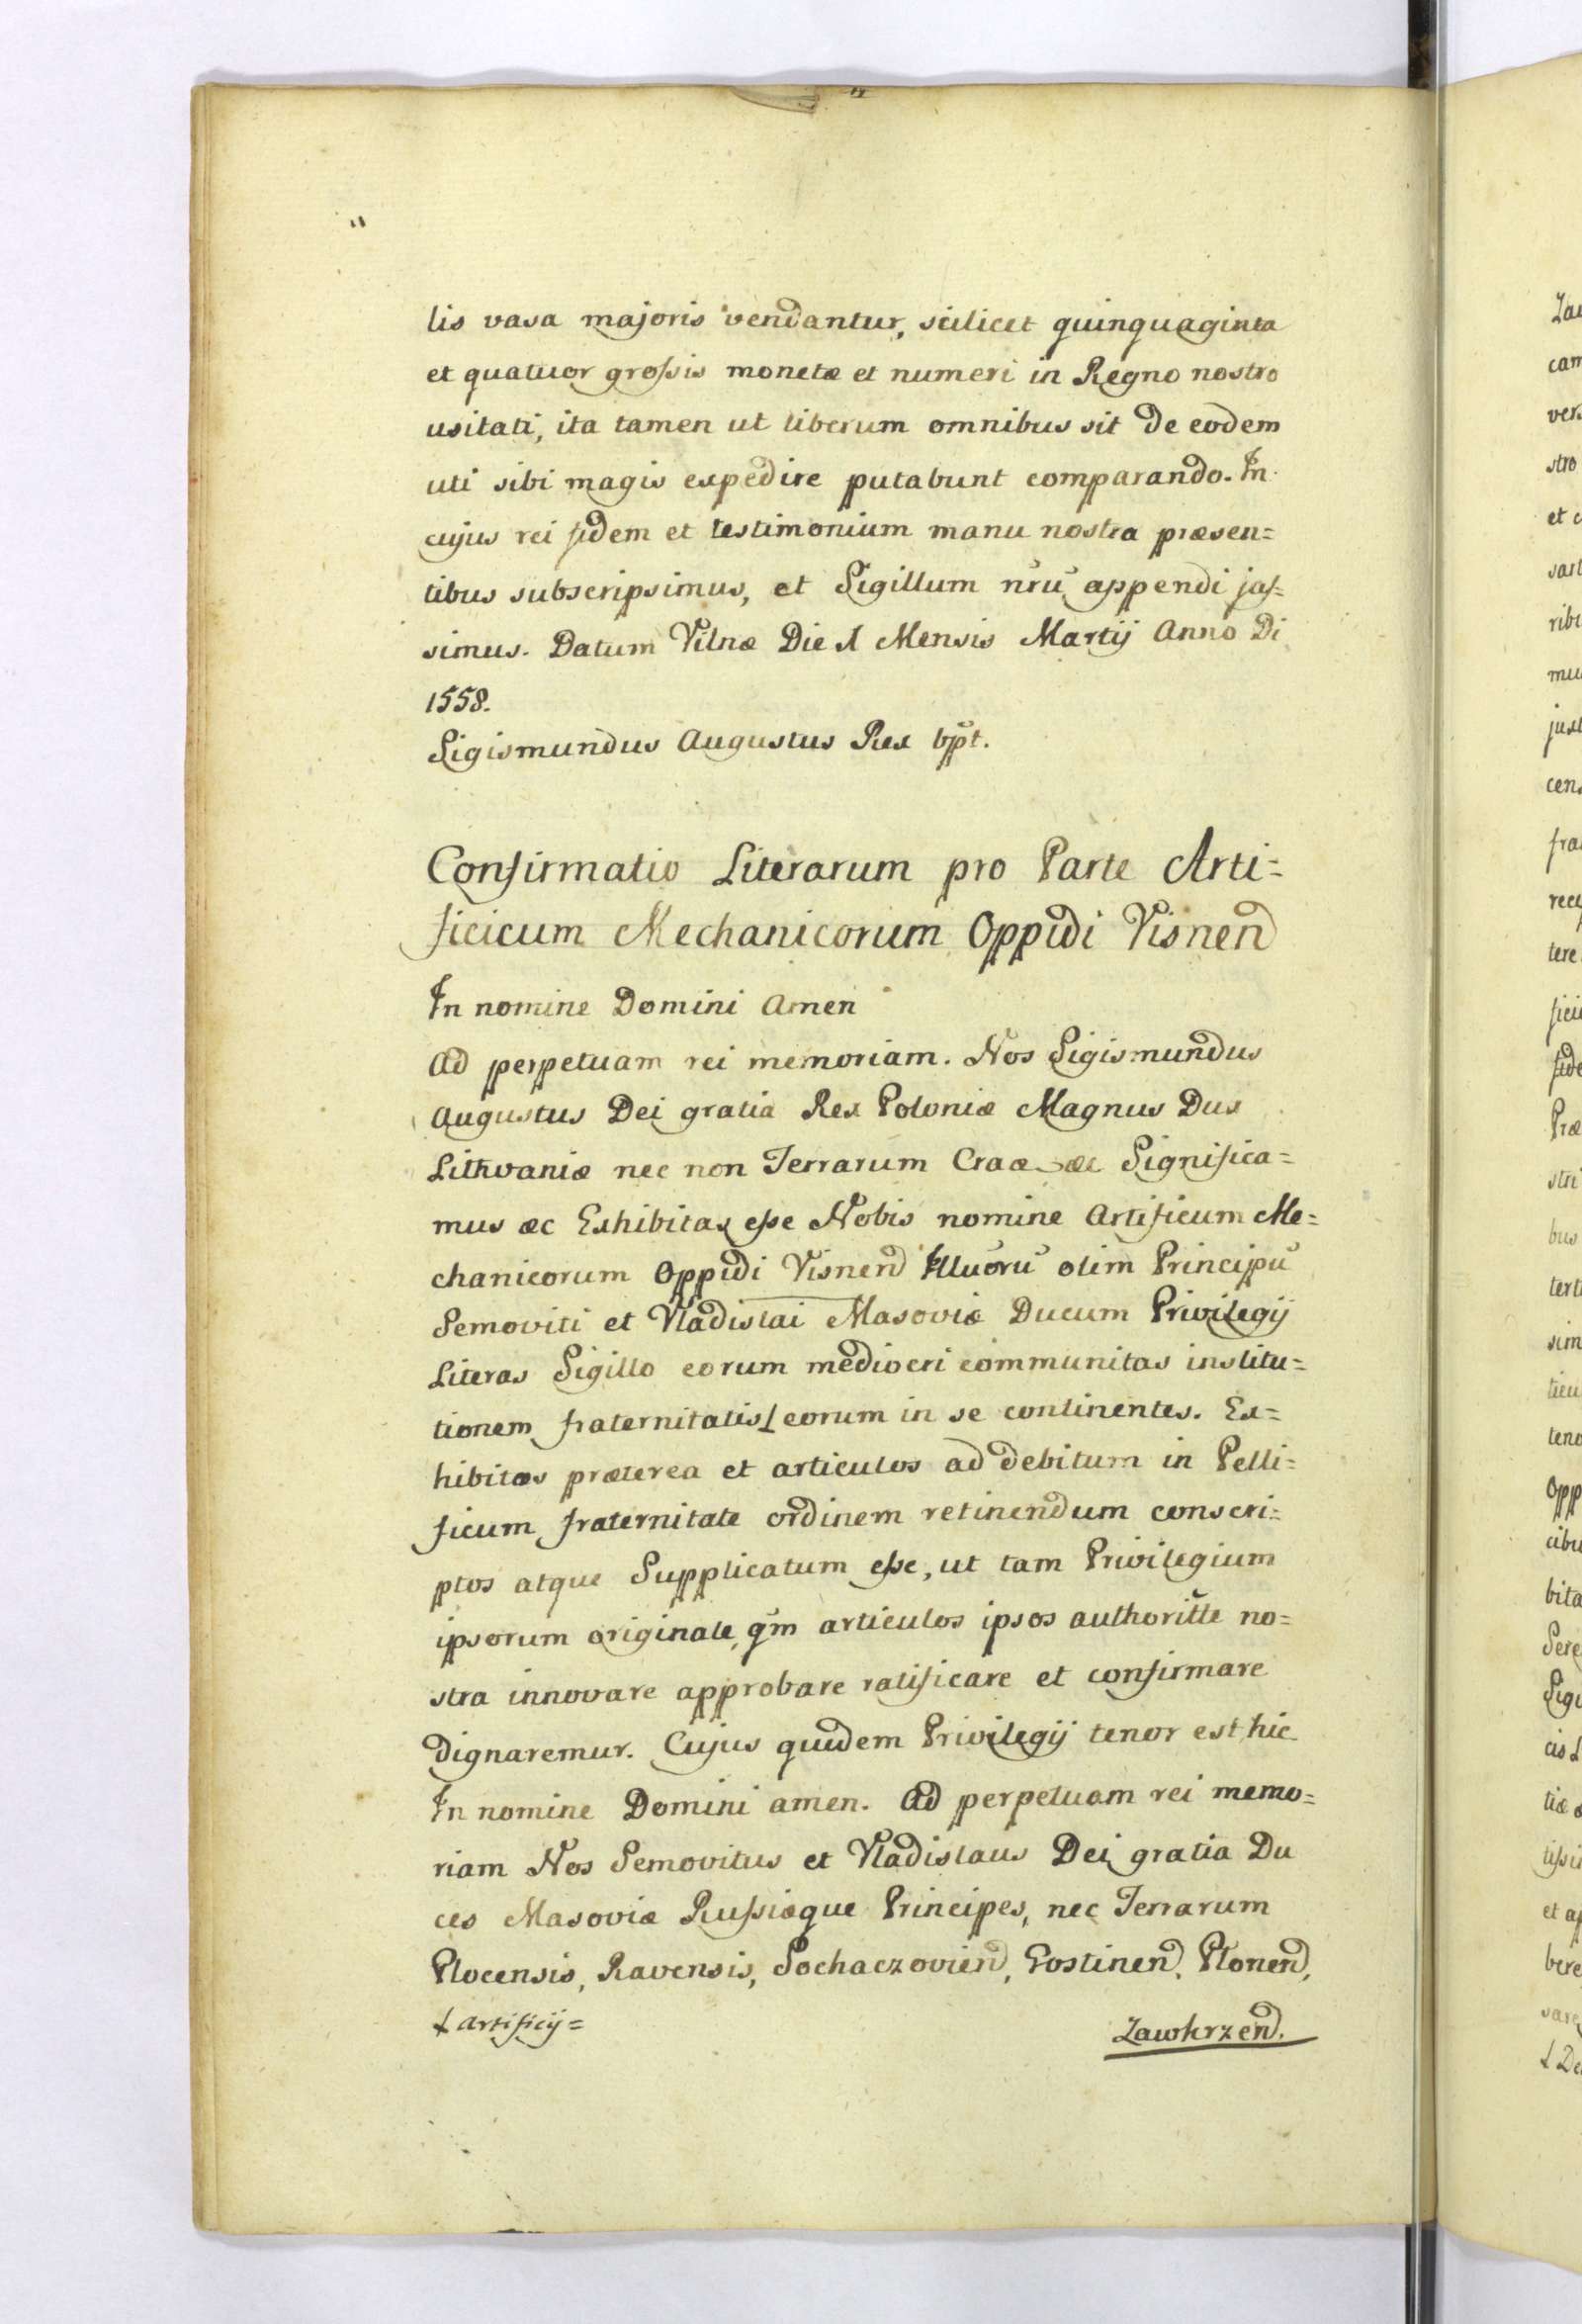 lis vasa majoris vendantur, scilicet quinquaginta
et quatuor grossis monetæ et numeri in Regno nostro
usitati, ita tamen ut liberum omnibus sit de eodem
uti sibi magis expedire putabunt comparando. In
cujus rei fidem et testimonium manu nostra præsen=
tibus subscripsimus, et Sigillum nr̄ū appendi jas=
simus. Datum Vilnæ Die 1 Mensis Martij Anno Di
1558.
Sigismundus Augustus Rex
Confirmatio Literarum pro Parte Arti=
ficicum Mechanicorum Oppidi Visnen̄d
In nomine Domini Amen
Ad perpetuam rei memoriam. Nos Sigismundus
Augustus Dei gratia Rex Poloniæ Magnus Dux
Lithvaniæ nec non Terrarum Significa=
mus æc Exhibitas esse Nobis nomine Artificum Me=
chanicorum Oppidi Visnen̄d olim Principū
Semoviti et Vladislai Masoviæ Ducum Privilegij
Literas Sigillo eorum mediocri communitas institu=
tionem fraternitatis ⁅ eorum in se continentes. Ex=
hibitos præterea et articulos ad debitum in Pelli=
ficum fraternitate ordinem retinendum conscri=
ptos atque Supplicatum esse, ut tam Privilegium
ipsorum originale, qm̄ articulos ipsos authoritt̄e no=
stra innovare approbare ratificare et confirmare
dignaremur. Cujus quidem Privilegij tenor est hic
In nomine Domini amen. Ad perpetuam rei memo=
riam Nos Semovitus et Vladislaus Dei gratia Du
ces Masoviæ Russiæque Principes, nec Terrarum
Plocensis, Ravensis, Sochaczovien̄d, Gostinen̄d, Plonen̄d,
⁅ artificij=
Zawkrzen̄d.